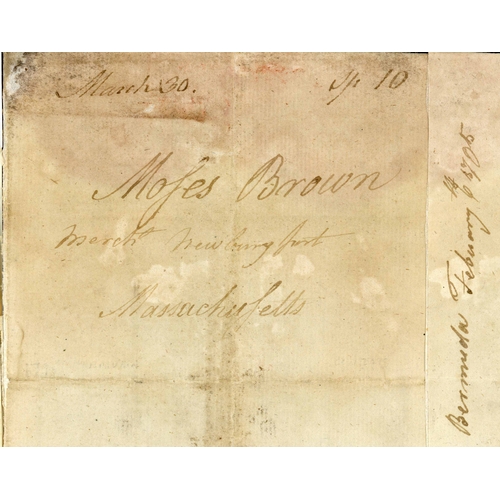 March 30.
10
Moſes Brown
Mercht Newburyport
Massachuſetts
Bermuda February 6th 1795